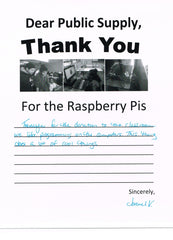 Dear Public Supply,
Thank You
For the Raspberry Pis
for the donation to our classroom
we like programming on the computers. This thing
does a lot of cool things.
Sincerely,